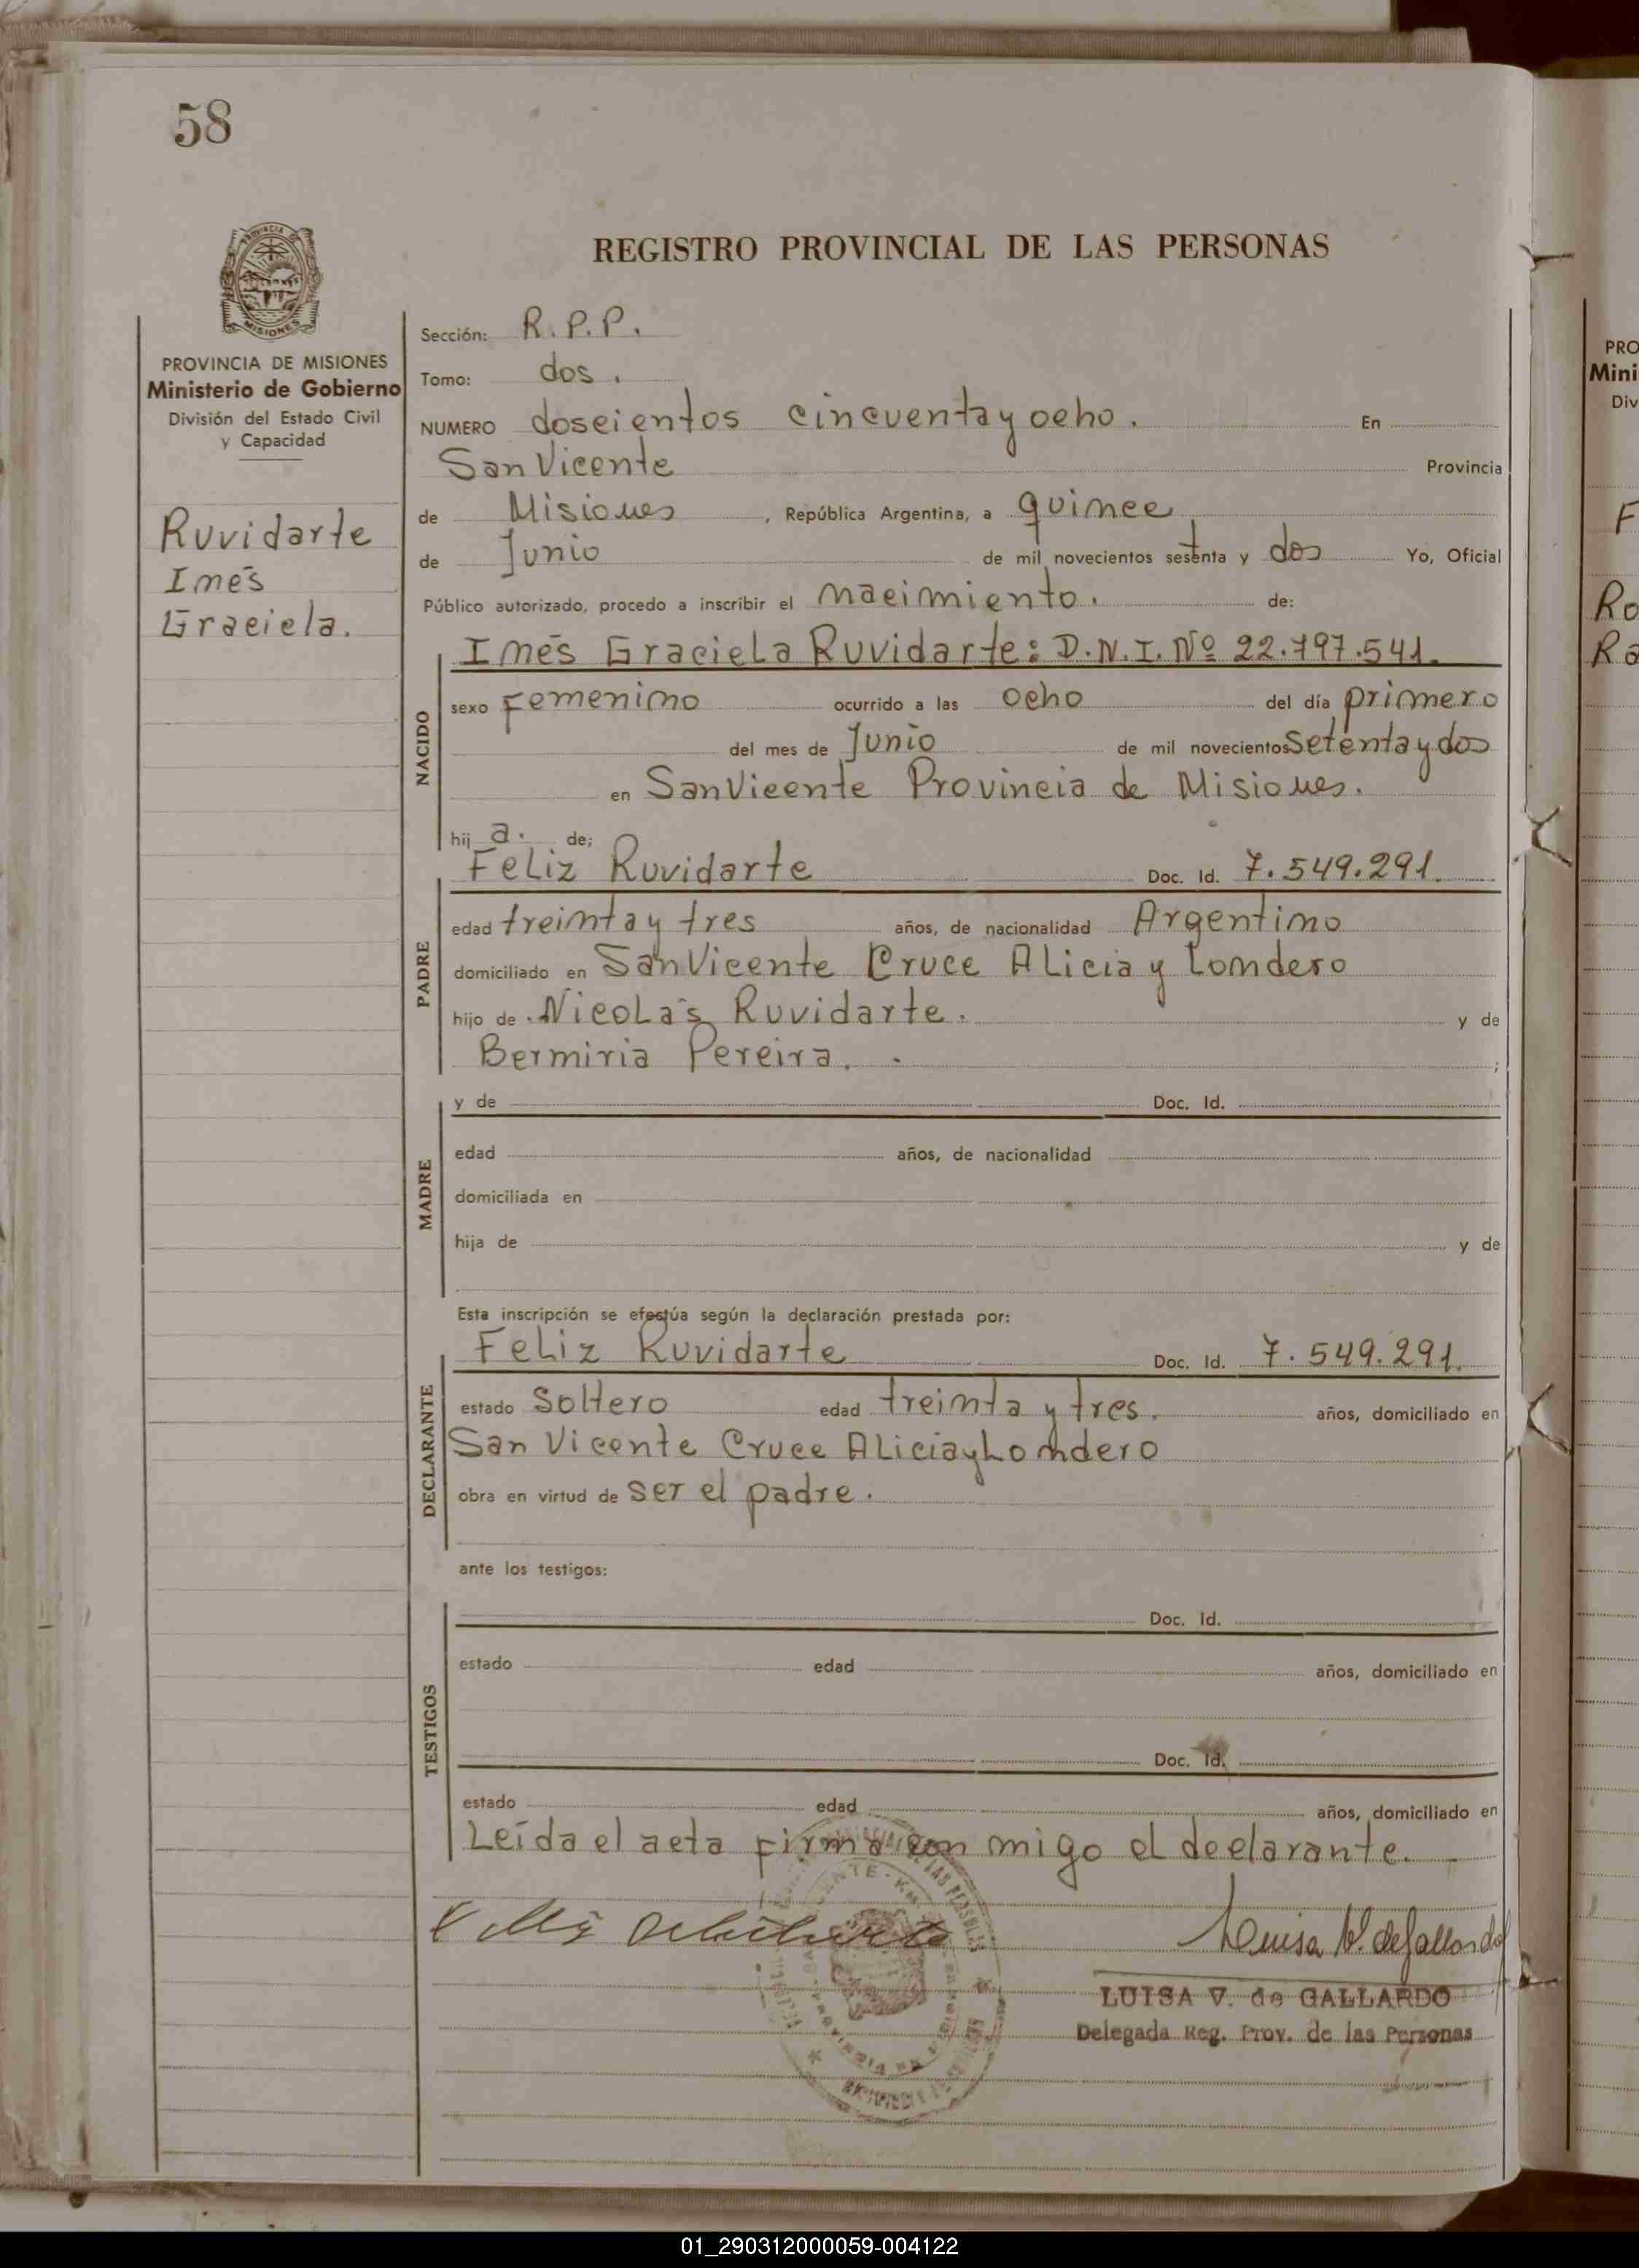 58
REGISTRO PROVINCIAL DE LAS PERSONAS
PROVINCIA DE
MISIONES
PROVINCIA DE MISIONES
Ministerio de Gobierno
División del Estado Civil
y Capacidad
Ruvidarte
Inés
Graciela.
Sección: R.P.P.
Tomo: dos.
NUMERO doscientos cincuenta y ocho. En
San Vicente Provincia
de Misiones, República Argentina, a quince
de Junio de mil novecientos sesenta y dos Yo, Oficial
Público autorizado, procedo a inscribir el nacimiento. de:
Inés Graciela Ruvidarte: D.N.I. Nº 22.797.541.
NACIDO
sexo Femenino ocurrido a las ocho del día primero
del mes de Junio de mil novecientos Setenta y dos
en San Vicente Provincia de Misiones.
hij a. de;
Feliz Ruvidarte Doc. Id. 7.549.291.
PADRE
edad treinta y tres años, de nacionalidad Argentino
domiciliado en San Vicente Cruce Alicia y Londero
hijo de Nicolás Ruvidarte. y de
Bermiria Pereira. ;
MADRE
y de Doc. Id.
edad años, de nacionalidad
domiciliada en
hija de y de
Esta inscripción se efectúa según la declaración prestada por:
Feliz Ruvidarte Doc. Id. 7.549.291.
DECLARANTE
estado Soltero edad treinta y tres. años, domiciliado en
San Vicente Cruce Alicia y Londero
obra en virtud de ser el padre.
ante los testigos:
TESTIGOS
Doc. Id.
estado edad años, domiciliado en
Doc. Id.
estado edad años, domiciliado en
Leída el acta firma con migo el declarante.
Luisa V. de Gallardo
LUISA V. de GALLARDO
Delegada Reg. Prov. de las Personas
PRO
Mini
Div
F
Ro
Ra
01_290312000059-004122